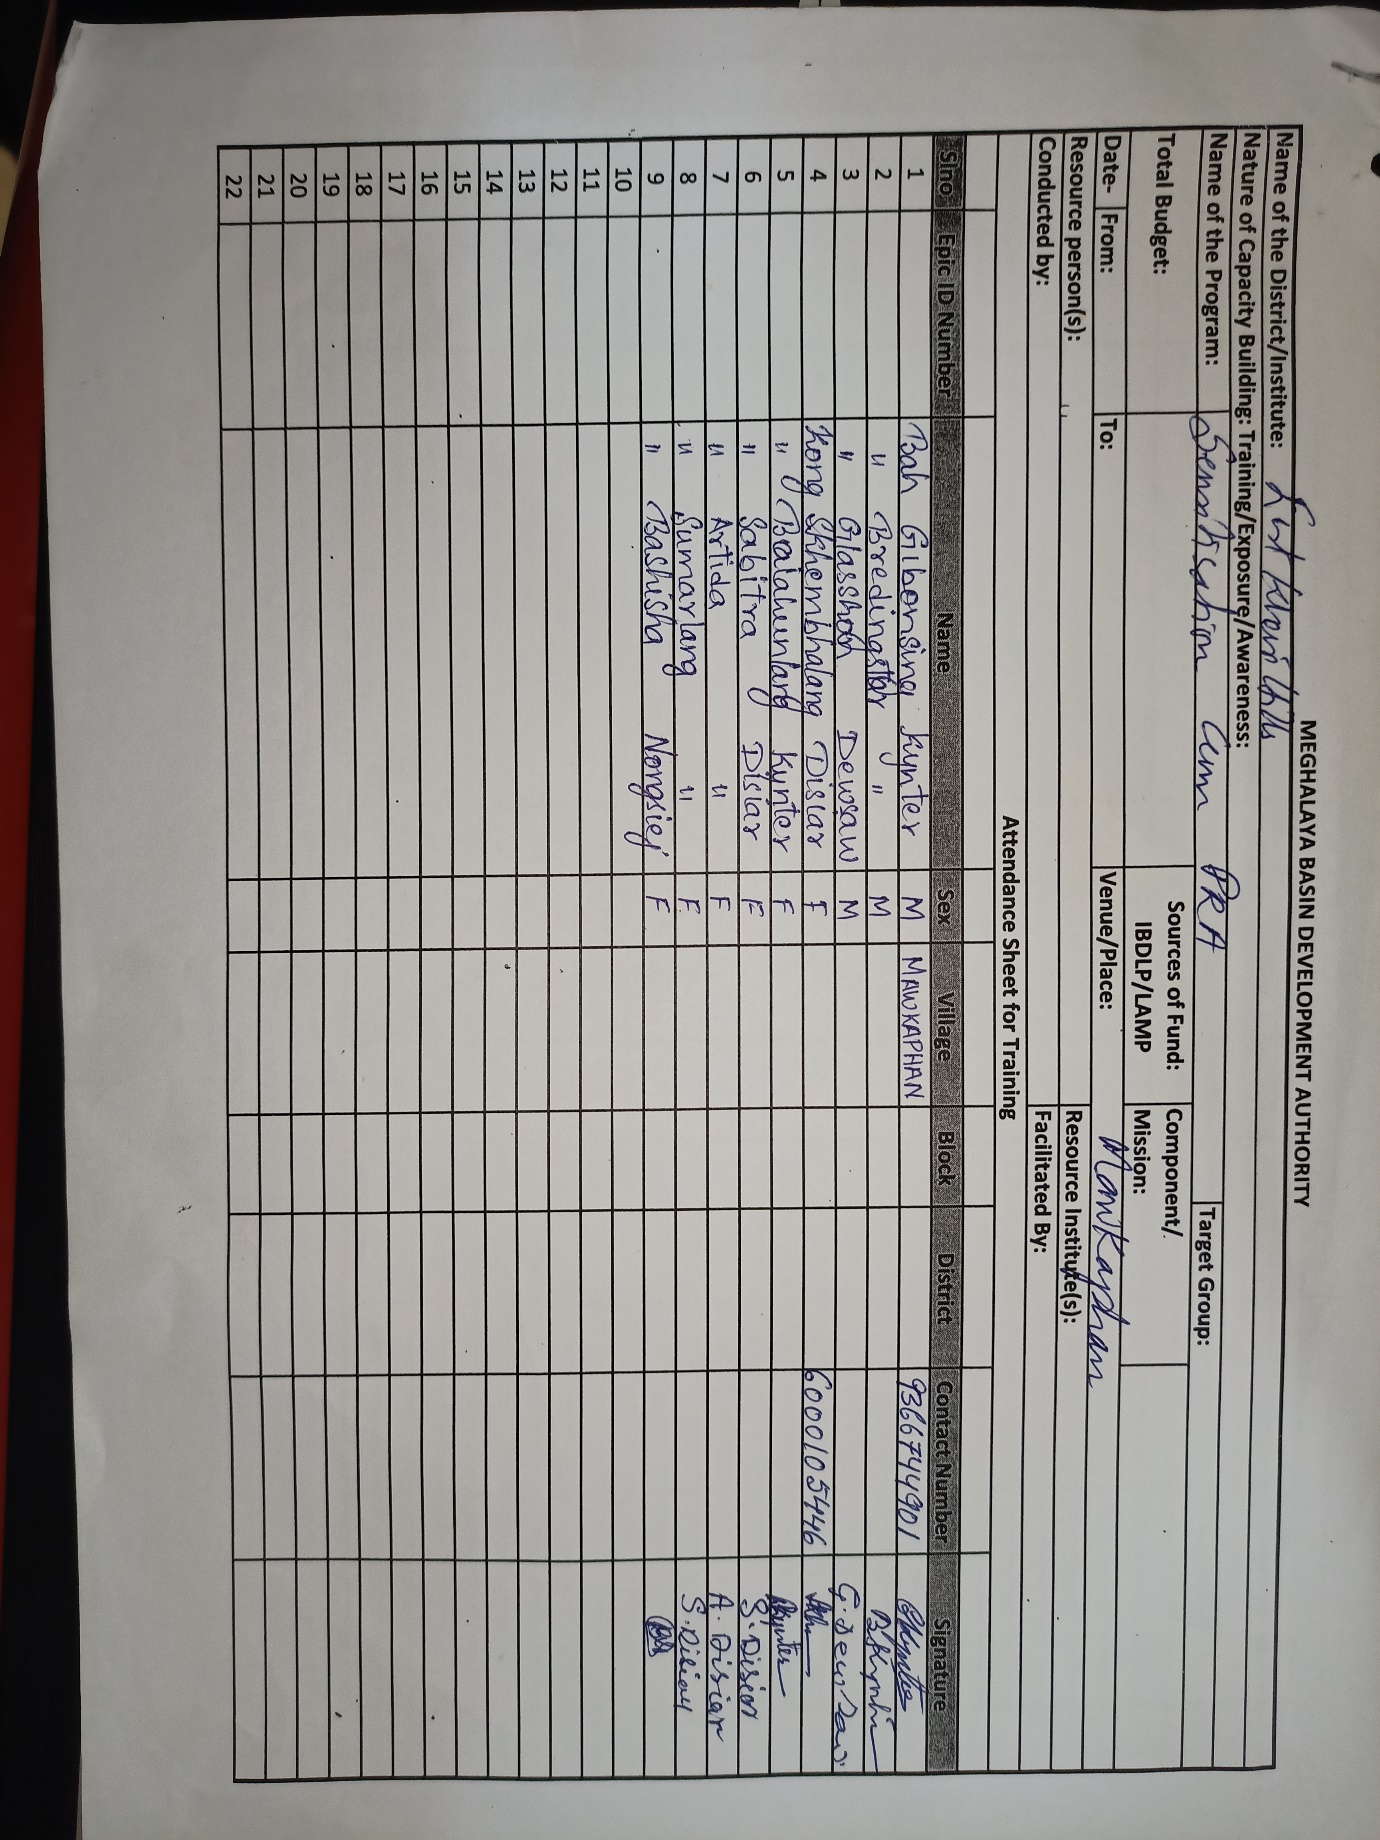 MEGHALAYA BASIN DEVELOPMENT AUTHORITY
Name of the District/Institute: East Khasi Hills
Nature of Capacity Building: Training/Exposure/Awareness:
Name of the Program: Sensitisation Cum PRA Target Group:
Total Budget: Sources of Fund: IBDLP/LAMP Component/ Mission:
Date- From: To: Venue/Place: Mawkaphan
Resource person(s): Resource Institute(s):
Conducted by: Facilitated By:
Attendance Sheet for Training
Slno Epic ID Number Name Sex Village Block District Contact Number Signature
1 Bah Gibonsing Kynter M MAWKAPHAN 9366744901
2 " Bredingstar " M
3 " Glasshon Dewsaw M G. Dewsaw
4 Kong Skhembhalang Disiar F 6000105446
5 " Balahunlang Kynter F Kynter
6 " Sabitra Disiar F S. Disiar
7 " Artida " F A. Disiar
8 " Sumarlang " F S. Disiar
9 " Bashisha Nongsiej F
10
11
12
13
14
15
16
17
18
19
20
21
22